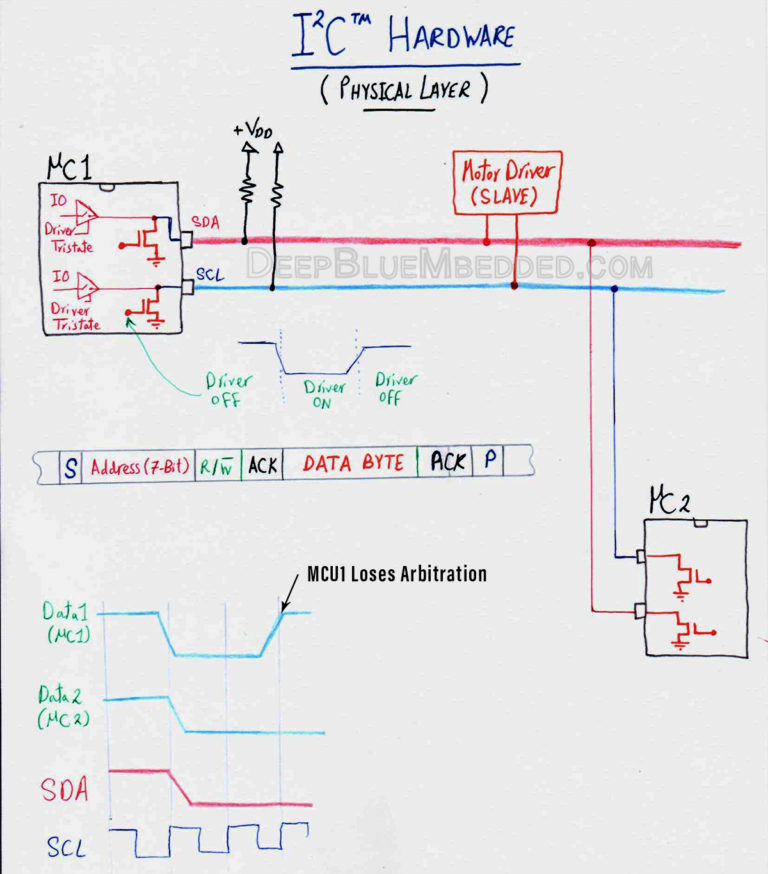 I²C™ HARDWARE
(PHYSICAL LAYER)
+VDD
μC1
IO
Driver
Tristate
IO
Driver
Tristate
SDA
SCL
Motor Driver
(SLAVE)
DEEPBLUEMBEDDED.COM
Driver
OFF
Driver
ON
Driver
OFF
S Address(7-Bit) R/W̅ ACK DATA BYTE ACK P
μC2
MCU1 Loses Arbitration
Data1
(μC1)
Data2
(μC2)
SDA
SCL